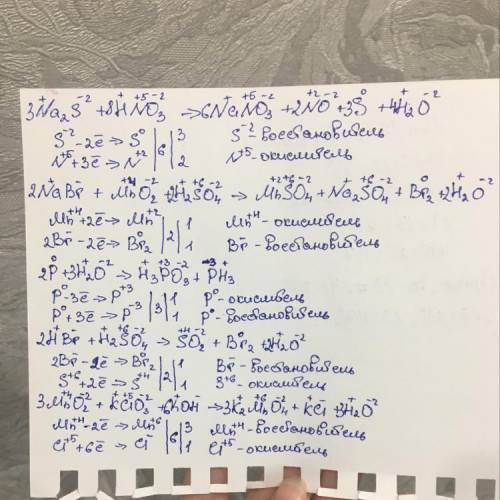 3Na₂⁺S⁻² + 8H⁺N⁺⁵O₃⁻² → 6Na⁺N⁺⁵O₃⁻² + 2N⁺²O⁻² + 3S⁰ + 4H₂⁺O⁻²
S⁻² - 2ē → S⁰ | 6 | 3 S⁻² - восстановитель
N⁺⁵ + 3ē → N⁺² | | 2 N⁺⁵ - окислитель
2NaBr⁻ + Mn⁺⁴O₂⁻² + 2H₂⁺S⁺⁶O₄⁻² → Mn⁺²S⁺⁶O₄⁻² + Na₂⁺S⁺⁶O₄⁻² + Br₂⁰ + 2H₂⁺O⁻²
Mn⁺⁴ + 2ē → Mn⁺² | 2 | 1 Mn⁺⁴ - окислитель
2Br⁻ - 2ē → Br₂⁰ | | 1 Br⁻ - восстановитель
2P⁰ + 3H₂⁺O⁻² → H₃⁺P⁺³O₃⁻² + P⁻³H₃⁺
P⁰ - 3ē → P⁺³ | 3 | 1 P⁰ - окислитель
P⁰ + 3ē → P⁻³ | | 1 P⁰ - восстановитель
2H⁺Br⁻ + H₂⁺S⁺⁶O₄⁻² → S⁺⁴O₂⁻² + Br₂⁰ + 2H₂⁺O⁻²
2Br⁻ - 2ē → Br₂⁰ | 2 | 1 Br⁻ - восстановитель
S⁺⁶ + 2ē → S⁺⁴ | | 1 S⁺⁶ - окислитель
3Mn⁺⁴O₂⁻² + KCl⁺⁵O₃⁻² + 6KOH → 3K₂⁺Mn⁺⁶O₄⁻² + K⁺Cl⁻ + 3H₂⁺O⁻²
Mn⁺⁴ - 2ē → Mn⁺⁶ | 6 | 3 Mn⁺⁴ - восстановитель
Cl⁺⁵ + 6ē → Cl⁻ | | 1 Cl⁺⁵ - окислитель